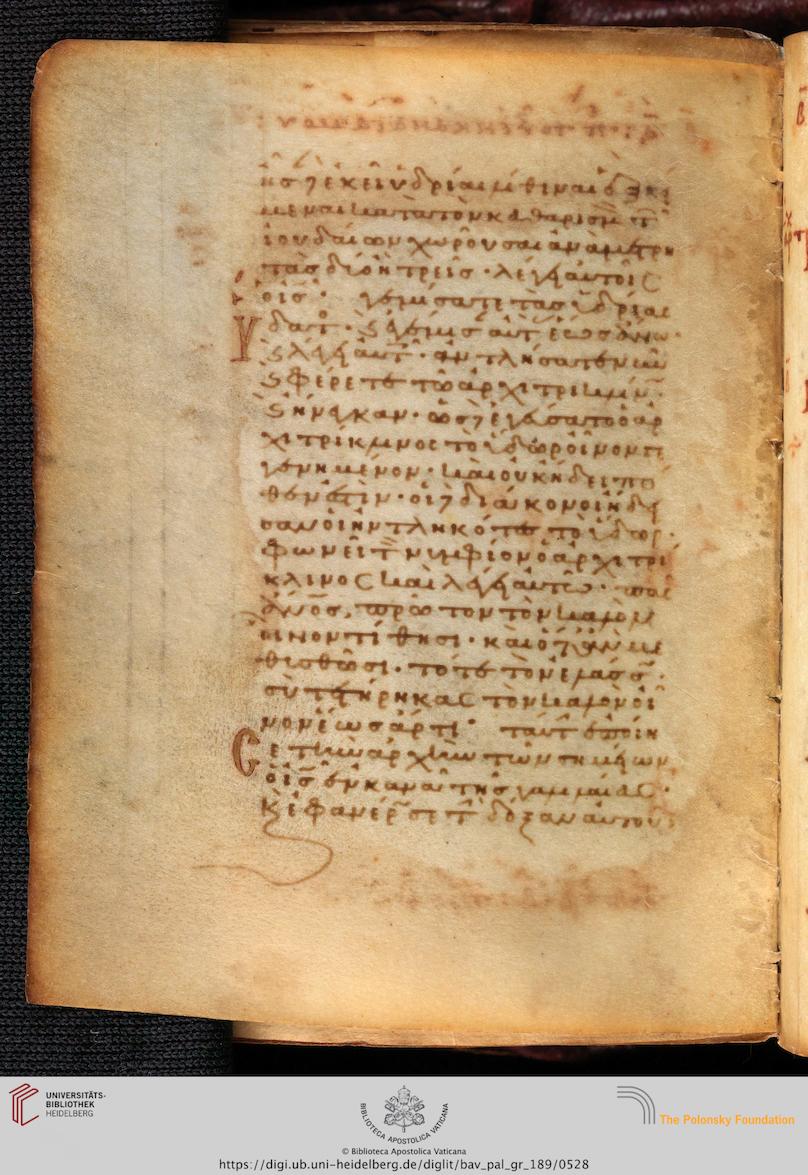 ησ δὲ ἐκεῖ ὑδρίαι λίθιναι ἓξ κεί
μεναι κατὰ τὸν καθαρισμ τ
ἰουδαίων χωροῦσαι ἀνὰ μετρη
τὰς δύο ἢ τρεῖς · λέγει αὐτοῖς
ὁ ις · γεμίσατε τὰς ὑδρίας
ὕδατ · ϗ ἐγέμισ αὐτ ἕως ἄνω ·
ϗ λέγει αὐτ · ἀντλήσατε νῦν
ϗ φέρετε τῶ ἀρχιτρικλίν ·
ϗ ἤνεγκαν · ὡς δὲ ἐγεύσατο ὁ αρ
χιτρίκλινος τὸ ὕδωρ οἶνον γε
γενημένον · καὶ οὐκ ἤδει πό
θεν ἐστὶν · οἱ δὲ διάκονοι ἤδει
σαν οἱ ἠντληκότες τὸ ὕδωρ ·
φωνεῖ τ νυμφίον ὁ ἀρχιτρι
κλινος καὶ λέγει αὐτῶ · πας
ἄνος πρῶτον τὸν καλὸν
οἶνον τίθησι · καὶ ὅταν με
θυσθῶσι · τότε τὸν ἐλάσσ ·
σὺ τετήρηκας τὸν καλὸν οἶ
νον ἕως ἄρτι · ταύτ ἐποίη
σε τὴν ἀρχὴν τῶν σημείων
ὁ ις ἐν κανᾶ τῆς γαλιλαίας ·
ϗ ἐφανέρωσε τ δόξαν αὐτοῦ
UNIVERSITÄTS-
BIBLIOTHEK
HEIDELBERG
BIBLIOTECA APOSTOLICA VATICANA
The Polonsky Foundation
© Biblioteca Apostolica Vaticana
https://digi.ub.uni-heidelberg.de/diglit/bav_pal_gr_189/0528